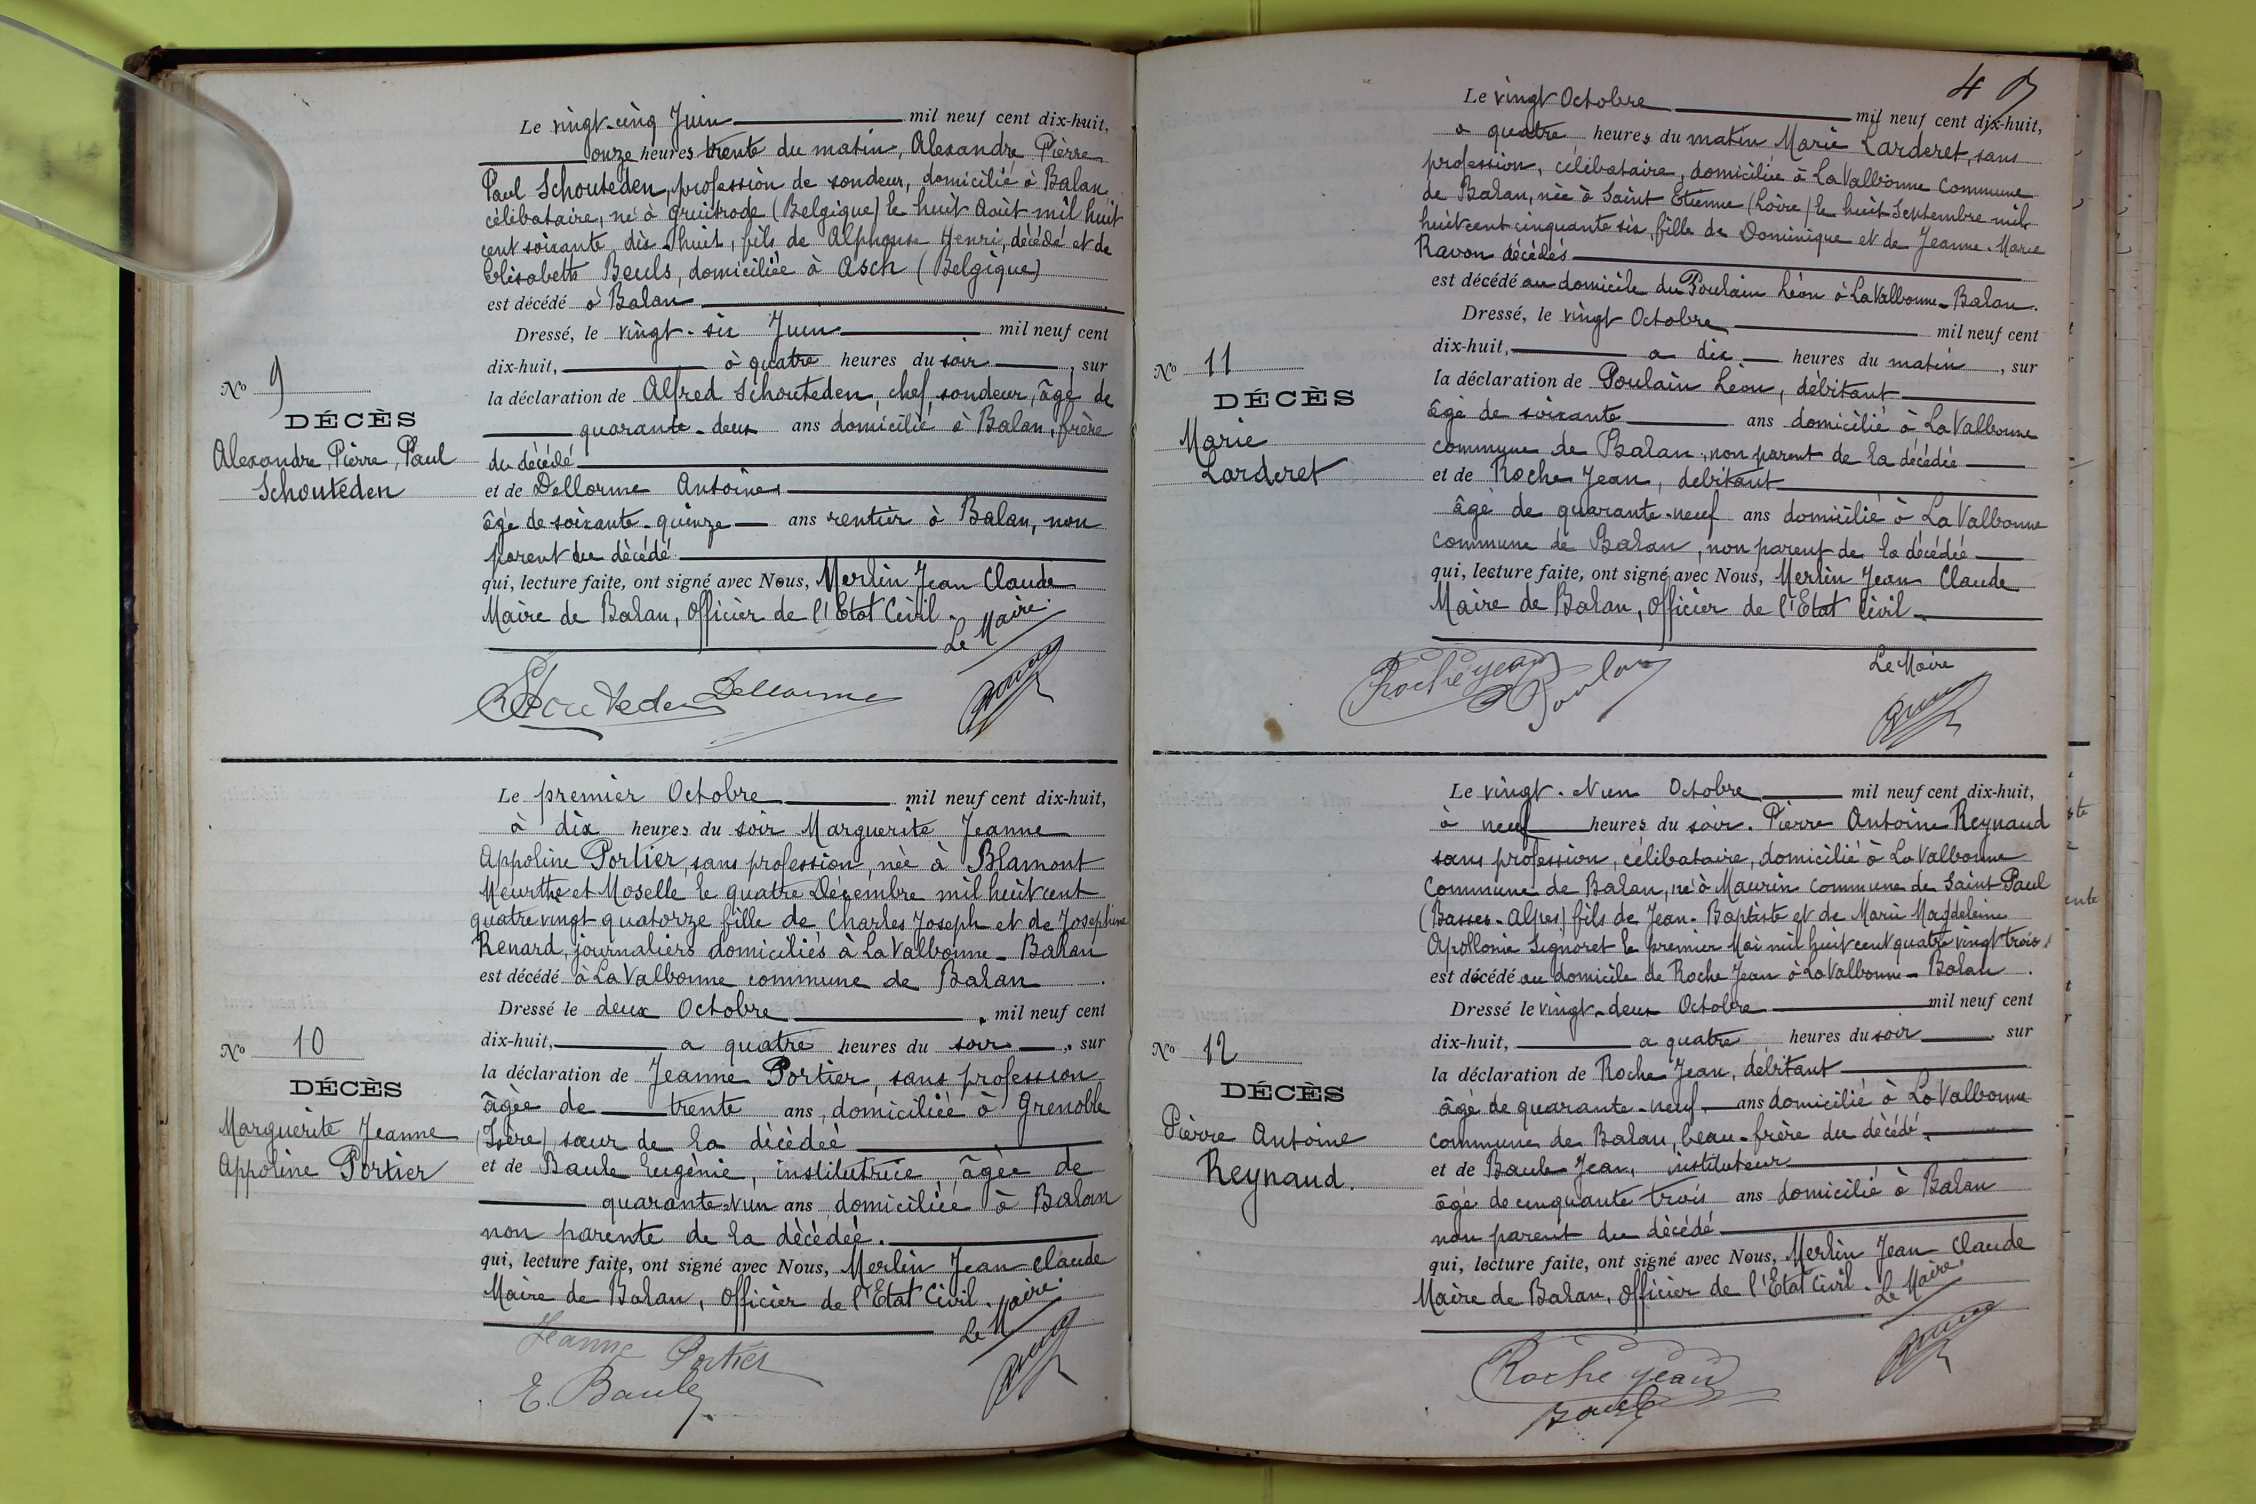 Le vingt-cinq Juin mil neuf cent dix-huit,
onze heures trente du matin, Alexandre Pierre
Paul Schouteden, profession de sondeur, domicilié à Balan
célibataire, né à Gruitrode (Belgique) le huit Août mil huit
cent soixante dix huit, fils de Alphonse Henri, décédé et de
Elisabeth Beuls, domiciliée à Asch (Belgique)
est décédé à Balan
Dressé, le vingt-six Juin mil neuf cent
dix-huit, à quatre heures du soir, sur
la déclaration de Alfred Schouteden, chef sondeur, âgé de
quarante-deux ans domicilié à Balan, frère
du décédé
et de Dellorme Antoine,
âgé de soixante-quinze ans rentier à Balan, non
parent du décédé
qui, lecture faite, ont signé avec Nous, Merlin Jean Claude
Maire de Balan, Officier de l'Etat Civil.
Le Maire.
Schouteden Dellorme
No 9
DÉCÈS
Alexandre, Pierre, Paul
Schouteden
Le premier Octobre mil neuf cent dix-huit,
à dix heures du soir Marguerite Jeanne
Appoline Portier, sans profession, née à Blamont
Meurthe et Moselle le quatre Décembre mil huit cent
quatre vingt quatorze fille de Charles Joseph et de Josephine
Renard, journaliers domiciliés à La Valbonne-Balan
est décédé à La Valbonne commune de Balan.
Dressé le deux Octobre, mil neuf cent
dix-huit, a quatre heures du soir, sur
la déclaration de Jeanne Portier, sans profession
âgée de trente ans, domiciliée à Grenoble
(Isère) sœur de la décédée
et de Baule Eugènie, institutrice, âgée de
quarante-un ans domiciliée à Balan
non parente de la décédée.
qui, lecture faite, ont signé avec Nous, Merlin Jean Claude
Maire de Balan, Officier de l'Etat Civil.
Le Maire.
Jeanne Portier
E. Baule
No 10
DÉCÈS
Marguerite Jeanne
Appoline Portier
4
Le vingt Octobre mil neuf cent dix-huit,
a quatre heures du matin Marie Larderet, sans
profession, célibataire, domiciliée à La Valbonne Commune
de Balan, née à Saint Etienne (Loire) le huit Septembre mil
huit cent cinquante six, fille de Dominique et de Jeanne-Marie
Ravon décédés
est décédé au domicile du Poulain Léon à La Valbonne-Balan.
Dressé, le vingt Octobre mil neuf cent
dix-huit, a dix heures du matin, sur
la déclaration de Poulain Léon, débitant
âgé de soixante ans domicilié à La Valbonne
commune de Balan, non parent de la décédée
et de Roche Jean, debitant
âgé de quarante-neuf ans domicilié à La Valbonne
commune de Balan, non parent de la décédée
qui, lecture faite, ont signé avec Nous, Merlin Jean Claude
Maire de Balan, Officier de l'Etat Civil
Le Maire
Roche Jean Poulain
No 11
DÉCÈS
Marie
Larderet
Le vingt-et un Octobre mil neuf cent dix-huit,
à neuf heures du soir. Pierre Antoine Reynaud
sans profession, célibataire, domicilié à La Valbonne
Commune de Balan, né à Maurin commune de Saint Paul
(Basses-Alpes) fils de Jean-Baptiste et de Marie Magdeleine
Apollonie Signoret le premier Mai mil huit cent quatre vingt trois
est décédé au domicile de Roche Jean à La Valbonne-Balan.
Dressé le vingt-deux Octobre mil neuf cent
dix-huit, a quatre heures du soir, sur
la déclaration de Roche Jean, debitant
âgé de quarante-neuf ans domicilié à La Valbonne
commune de Balan, beau-frère du décédé,
et de Baule Jean, instituteur
âgé de cinquante trois ans domicilié à Balan
non parent du décédé
qui, lecture faite, ont signé avec Nous, Merlin Jean Claude
Maire de Balan, Officier de l'Etat Civil.
Le Maire.
Roche Jean
Baule
No 12
DÉCÈS
Pierre Antoine
Reynaud.